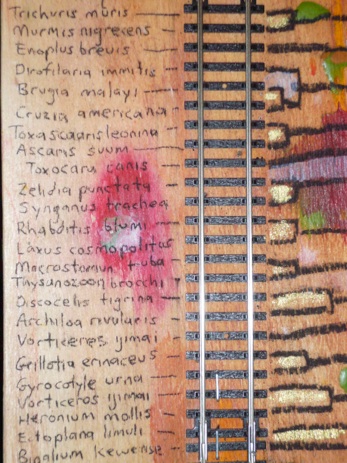 Trichuris muris
Murmis nigrescens
Enoplus brevis
Dirofilaria immitis
Brugia malayi
Cruzia americana
Toxascaris leonina
Ascaris suum
Toxocara canis
Zeldia punctata
Syngamus trachea
Rhabditis blumi
Laxus cosmopolitus
Macrostomum tuba
Thysanozoon brocchi
Discocelis tigrina
Archiloa rivularis
Vorticeros ijimai
Grillotia erinaceus
Gyrocotyle urna
Vorticeros ijimai
Heronium mollis
Ectoplana limuli
Bipalium kewense